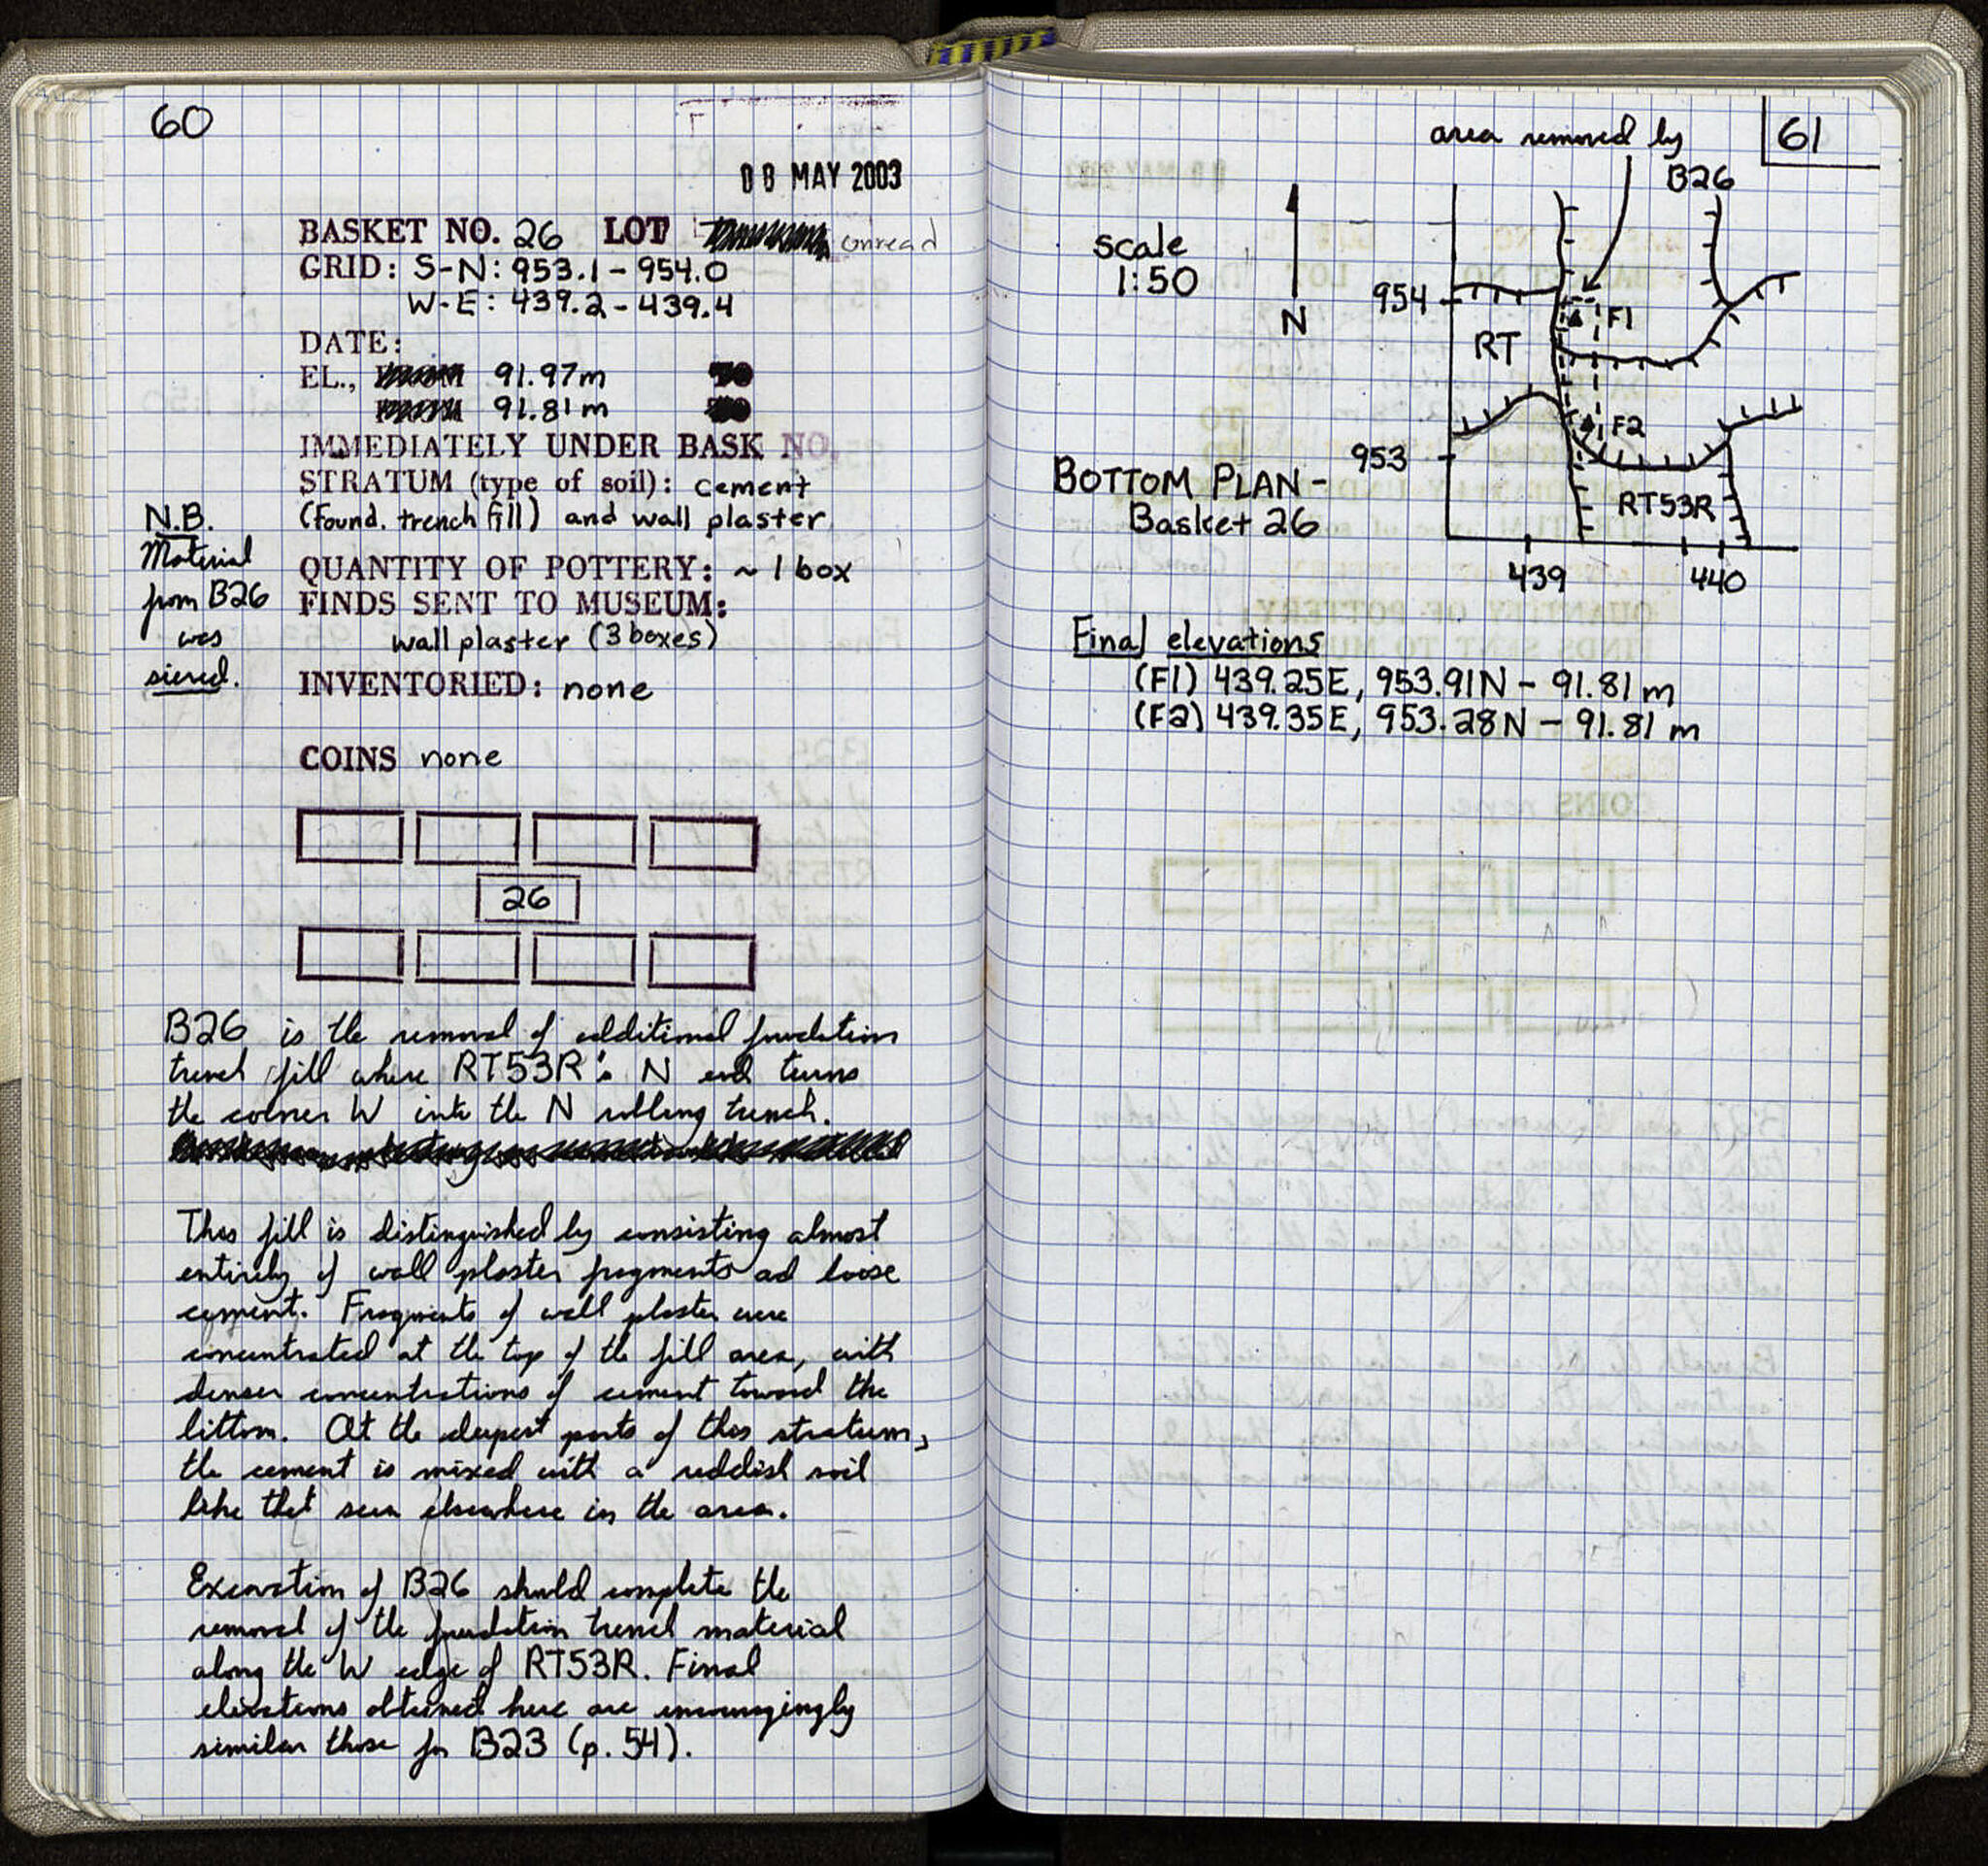 60
08 MAY 2003
BASKET NO. 26 LOT unread
GRID: S-N: 953.1 - 954.0
W-E: 439.2 - 439.4
DATE:
EL., 91.97m
91.81m
IMMEDIATELY UNDER BASK NO.
STRATUM (type of soil): cement
(found. trench fill) and wall plaster
QUANTITY OF POTTERY: ~ 1 box
FINDS SENT TO MUSEUM:
wall plaster (3 boxes)
INVENTORIED: none
N.B.
Material
from B26
was
sieved.
COINS none
26
B26 is the removal of additional foundation
trench fill where RT53R's N end turns
the corner W into the N robbing trench.
This fill is distinguished by consisting almost
entirely of wall plaster fragments ad loose
cement. Fragments of wall plaster were
concentrated at the top of the fill area, with
denser concentrations of cement toward the
bottom. At the deepest parts of this stratum,
the cement is mixed with a reddish soil
like that seen elsewhere in the area.
Excavation of B26 should complete the
removal of the foundation trench material
along the W edge of RT53R. Final
elevations obtained here are encouragingly
similar those for B23 (p. 54).
61
area removed by
B26
scale
1:50
N
954
F1
RT
F2
953
RT53R
439 440
BOTTOM PLAN -
Basket 26
Final elevations
(F1) 439.25E, 953.91N - 91.81 m
(F2) 439.35E, 953.28N - 91.81 m